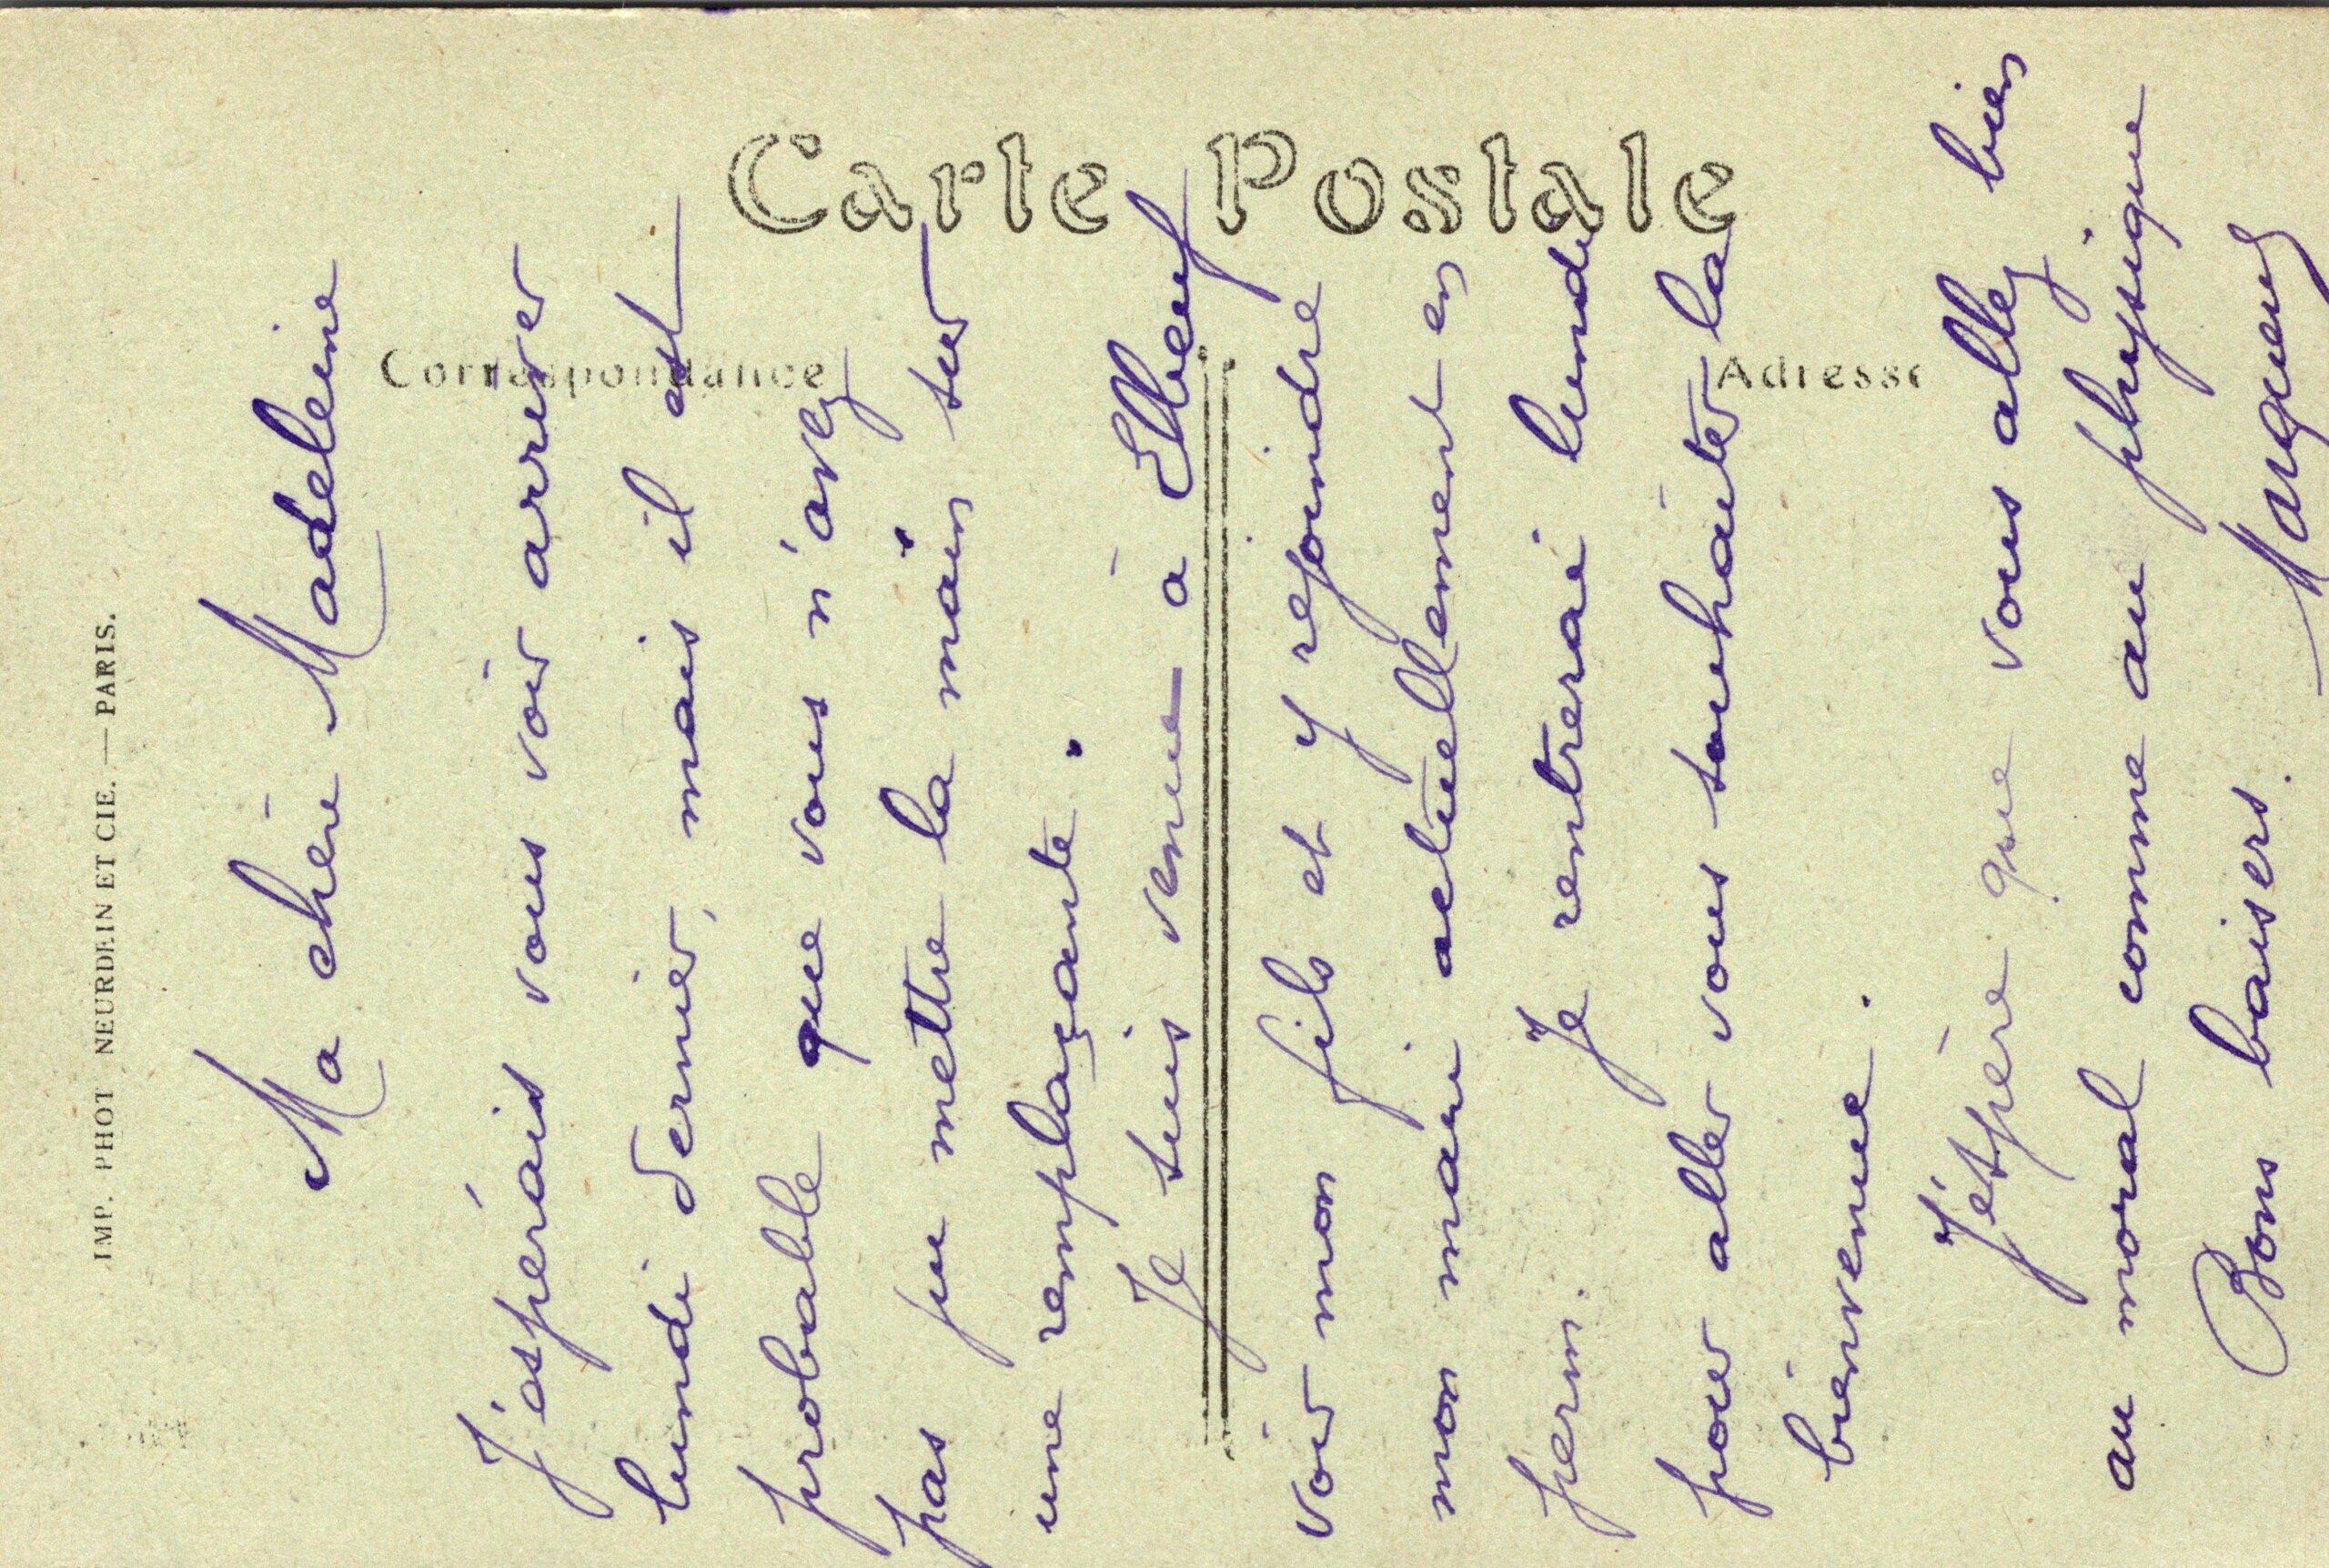 Carte Postale
Correspondance
Adresse
IMP. PHOT NEURDEIN ET CIE. — PARIS.
Ma chère Madeleine
J'espérais vous voir arriver
lundi dernier, mais il est
probable que vous n'avez
pas pu mettre la main sur
une remplaçante.
Je suis venue à Elbeuf
voir mon fils et y rejoindre
mon mari actuellement en
perm. Je rentrerai lundi
pour aller vous souhaiter la
bienvenue.
J'espère que vous allez bien
au moral comme au physique
Bons baisers.